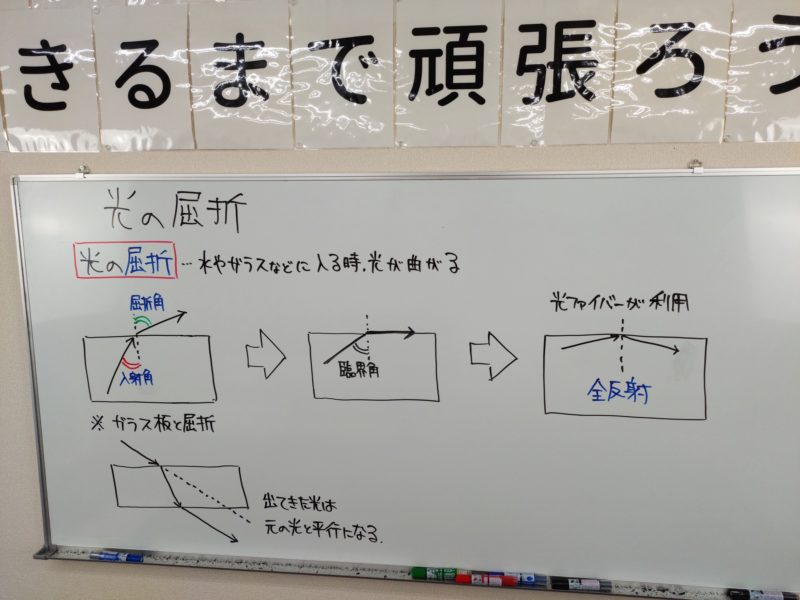 きるまで頑張ろう
光の屈折
光の屈折…水やガラスなどに入る時、光が曲がる
屈折角
入射角
臨界角
光ファイバーが利用
全反射
※ガラス板と屈折
出てきた光は
元の光と平行になる.